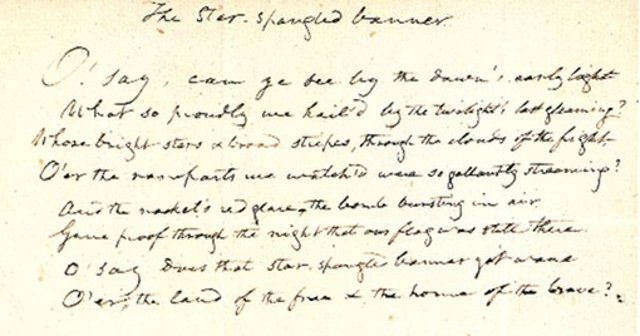 The Star-spangled banner
O! say, can ye see by the dawn's early light
What so proudly we hail'd by the twilight's last gleaming?
Whose bright stars & broad stripes, through the clouds of the fight
O'er the ramparts we watch'd were so gallantly streaming?
And the rocket's red glare, the bomb bursting in air
Gave proof through the night that our flag was still there
O! say does that star-spangled banner yet wave
O'er the land of the free & the home of the brave?